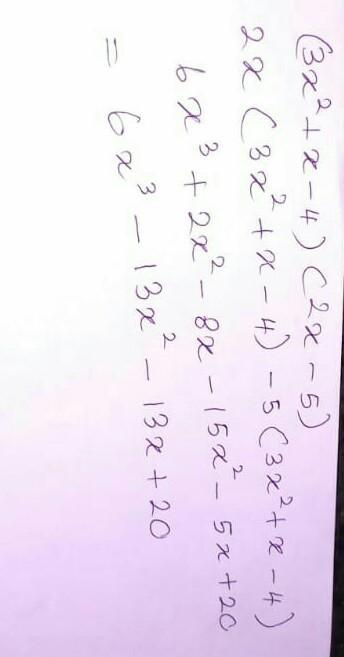 (3x² + x - 4) (2x - 5)
2x (3x² + x - 4) - 5 (3x² + x - 4)
6x³ + 2x² - 8x - 15x² - 5x + 20
= 6x³ - 13x² - 13x + 20